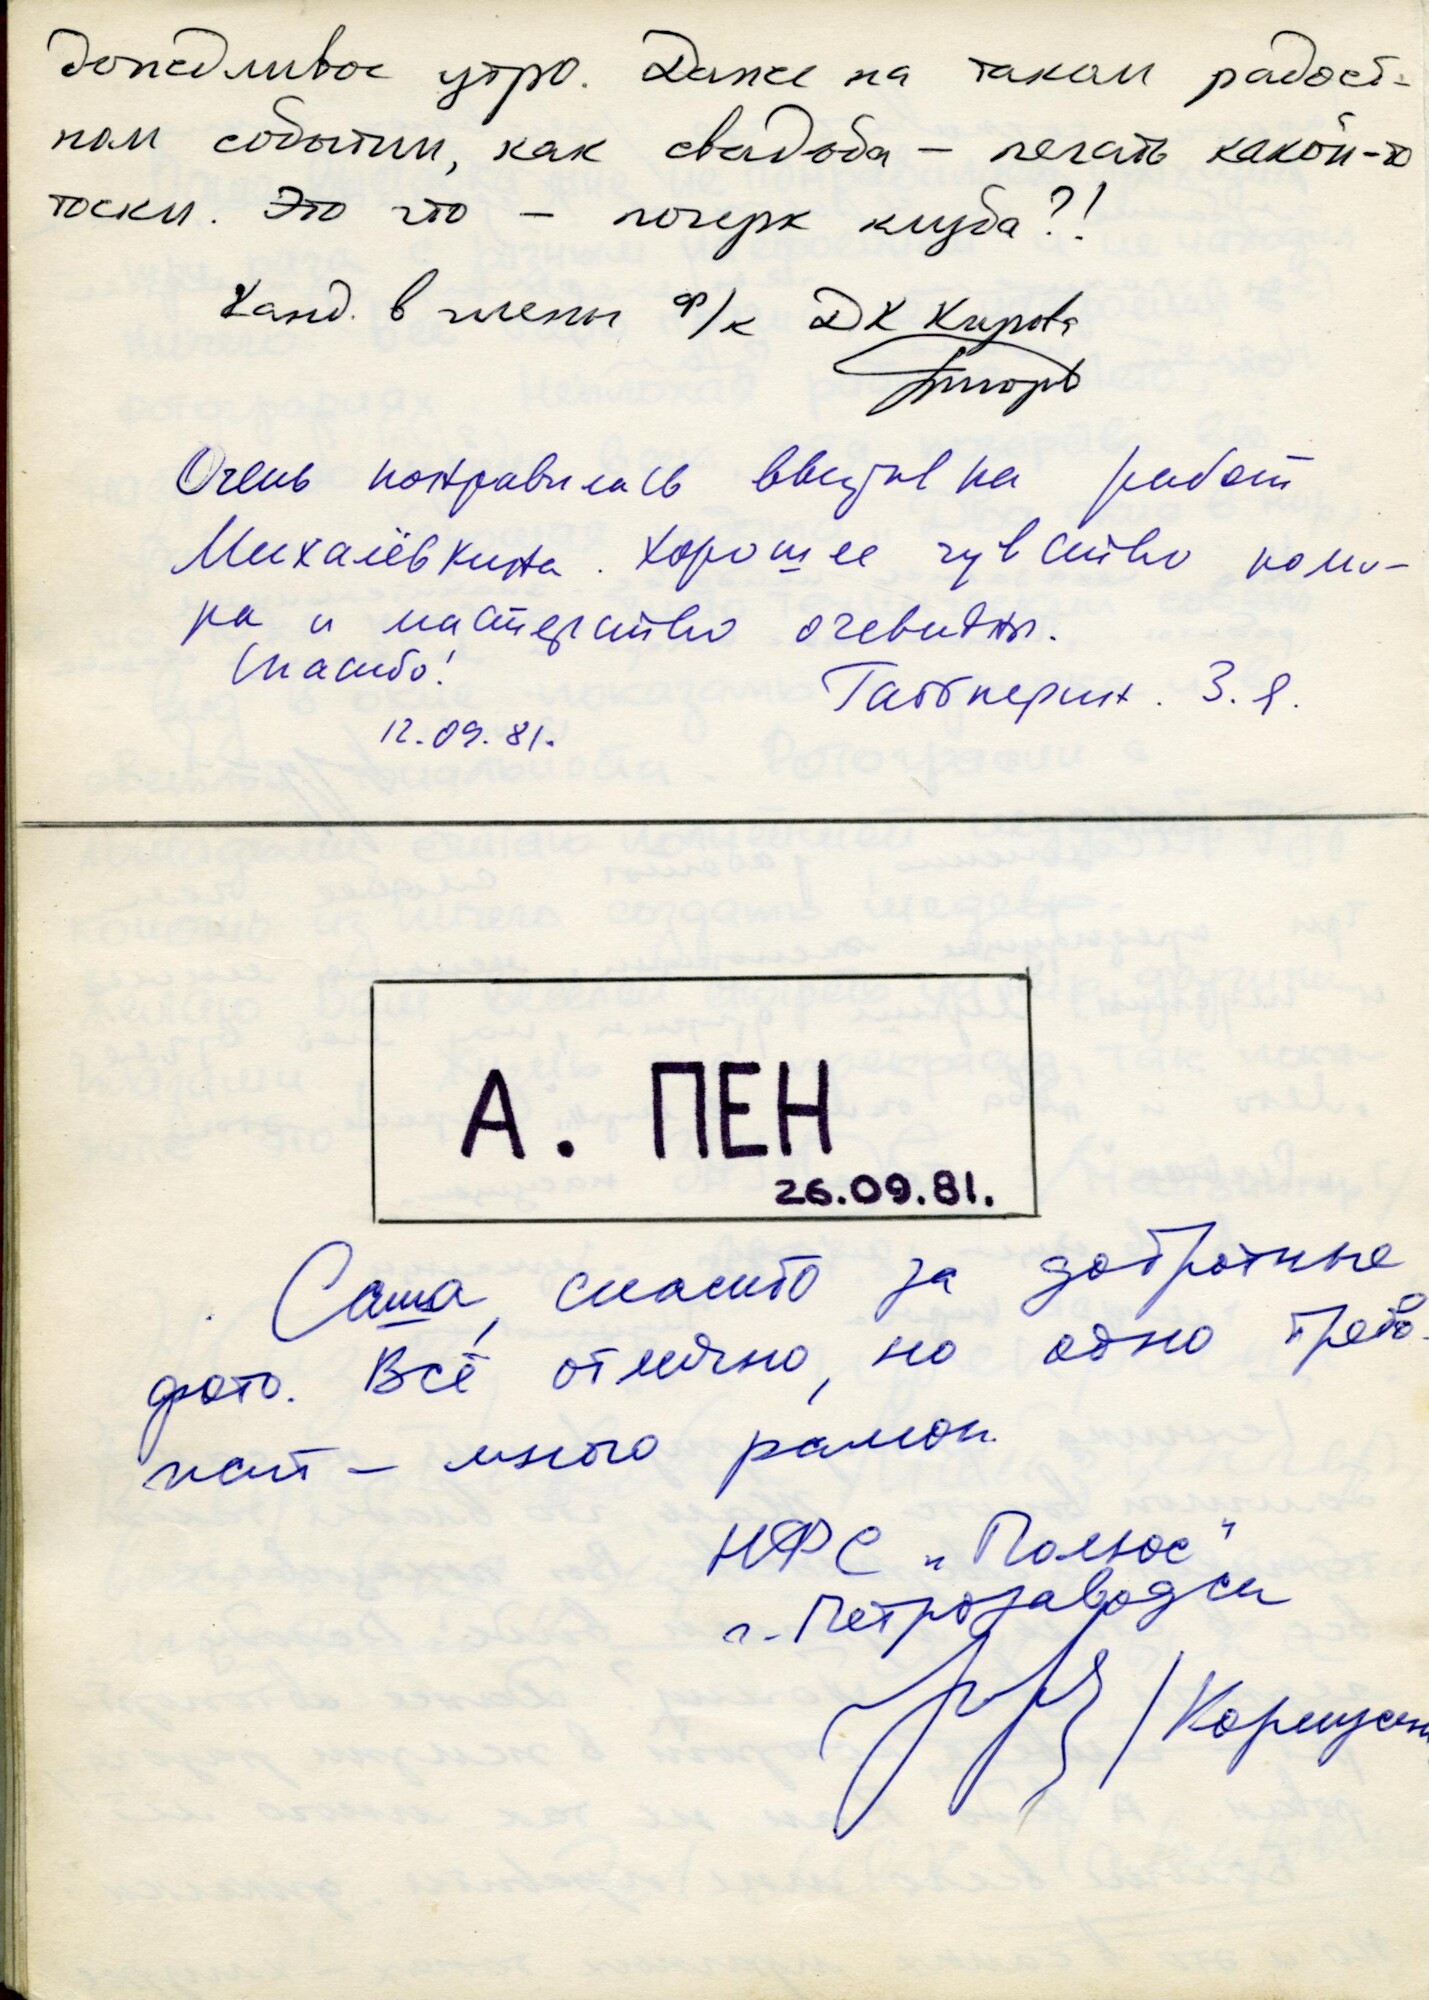 дождливое утро. Даже на таком радост-
ном событии, как свадьба – печать какой-то
тоски. Это что – почерк клуба?!
Канд. в члены ф/к ДК Кирова
Очень понравилась выставка работ
Михалёвкина. Хорошее чувство юмо-
ра и мастерство очевидны.
Спасибо!
З. Я.
12.09.81.
А. ПЕН
26.09.81.
Саша, спасибо за добротные
фото. Всё отлично, но одно трево-
жит – много рамок.
НФС „Полюс"
г. Петрозаводск